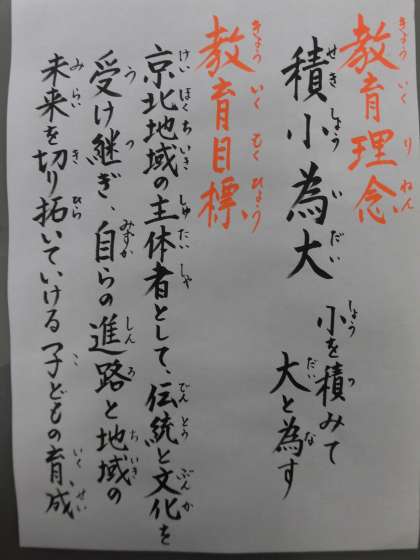 教育理念
積小為大 小を積みて
大と為す
教育目標
京北地域の主体者として、伝統と文化を
受け継ぎ、自らの進路と地域の
未来を切り拓いていける子どもの育成